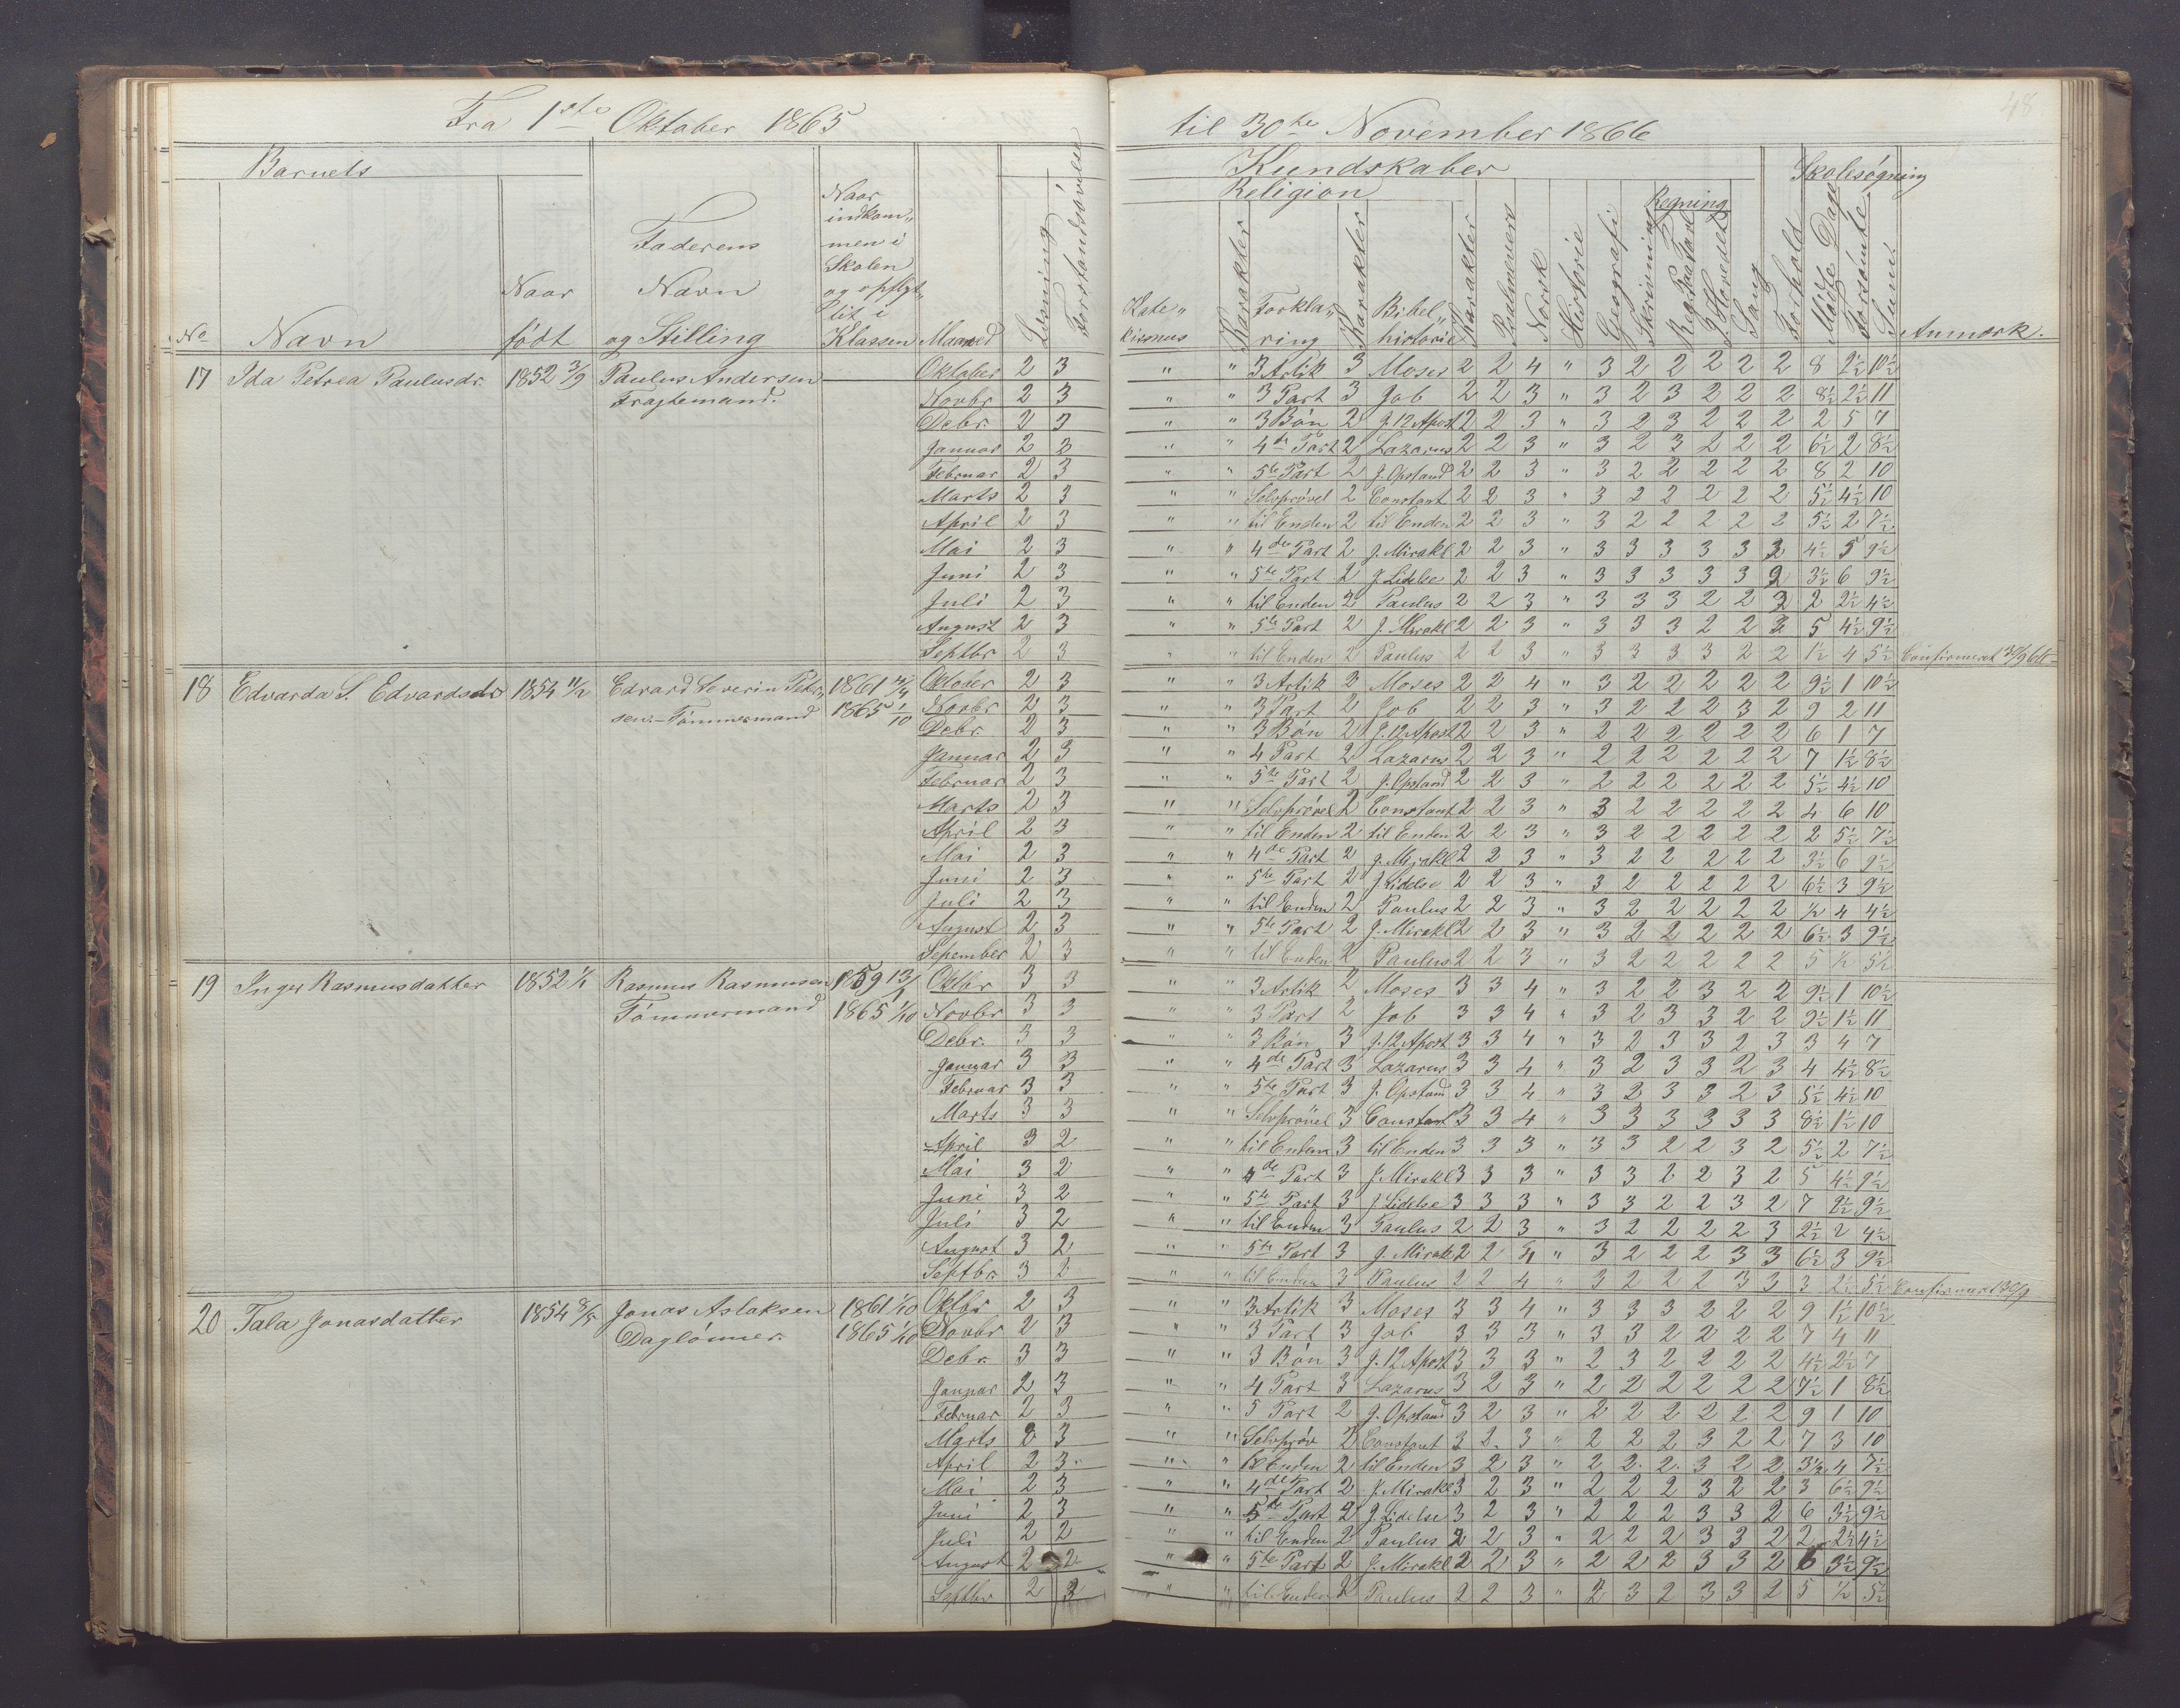 48
Fra 1ste Oktober 1865 til 30te November 1866
Barnets
Kundskaber
Skolesøgning
Religion
Regning
No
Navn
Naar født
Faderens Navn og Stilling
Naar indkom„ men i Skolen og opflyt„ tet i Klassen
Maaned
Læsning
Forstandsøvelse
Kate„ kismus
Karakter
Forkla„ ring
Karakter
Bibel„ historie
Karakter
Psalmevers
Norsk
Historie
Geografi
Skrivning
Reg. Paa Tavl
I Hovedet
Sang
Forhold
Mødte Dage
Forsømte
Sum
Anmærk.
17 Ida Petrea Paulusdr. 1852 3/9 Paulus Andersen
Fragtemand.
Oktober 2 3 " " 3 Artik 3 Moses 2 2 4 " 3 2 2 2 2 2 8 2½ 10½
Novbr 2 3 " " 3 Part 3 Job 2 2 3 " 3 2 3 2 2 2 8½ 2½ 11
Debr. 2 3 " " 3 Bøn 2 J. 12 Apost 2 2 3 " 3 2 3 2 2 2 2 5 7
Januar 2 3 " " 4de Part 2 Lazarus 2 2 3 " 3 2 3 2 2 2 6½ 2 8½
Februar 2 3 " " 5te Part 2 J. Opstand 2 2 3 " 3 2 2 2 2 2 8 2 10
Marts 2 3 " " Selvprøvel 2 Constant 2 2 3 " 3 2 2 2 2 2 5½ 4½ 10
April 2 3 " " til Enden 2 til Enden 2 2 3 " 3 2 2 2 2 2 5½ 2 7½
Mai 2 3 " " 4de Part 2 J. Mirakl 2 2 3 " 3 3 3 3 3 2 4½ 5 9½
Juni 2 3 " " 5te Part 2 J. Lidelse 2 2 3 " 3 3 3 3 3 2 3½ 6 9½
Juli 2 3 " " til Enden 2 Paulus 2 2 3 " 3 3 3 2 2 2 2 2½ 4½
August 2 3 " " 5te Part 2 J. Mirakl 2 2 3 " 3 3 3 2 2 2 5 4½ 9½
Septbr 2 3 " " til Enden 2 Paulus 2 2 3 " 3 3 3 3 2 2 1½ 4 5½ Confirmeret 30/9 66
18 Edvarda S. Edvardsdr 1854 11/2 Edvard Severin Peter„
sen. - Tømmermand
1865 1/10
Oktober 2 3 " " 3 Artik 3 Moses 2 2 4 " 3 2 2 2 2 2 9½ 1 10½
Novbr 2 3 " " 3 Part 2 Job 2 2 3 " 3 2 2 2 3 2 9 2 11
Debr. 2 3 " " 3 Bøn 2 J. 12 Apost 2 2 3 " 2 2 2 2 2 2 6 1 7
Januar 2 3 " " 4 Part 2 Lazarus 2 2 3 " 2 2 2 2 2 2 7 1½ 8½
Februar 2 3 " " 5te Part 2 J. Opstand 2 2 3 " 2 2 2 2 2 2 5½ 4½ 10
Marts 2 3 " " Selvprøvel 2 Constant 2 2 3 " 3 2 2 2 2 2 4 6 10
April 2 3 " " til Enden 2 til Enden 2 2 3 " 3 2 2 2 2 2 2 5½ 7½
Mai 2 3 " " 4de Part 2 J. Mirakl 2 2 3 " 3 2 2 2 2 2 3½ 6 9½
Juni 2 3 " " 5te Part 2 J. Lidelse 2 2 3 " 3 2 2 2 2 2 6½ 3 9½
Juli 2 3 " " til Enden 2 Paulus 2 2 3 " 3 2 2 2 2 2 ½ 4 4½
August 2 3 " " 5te Part 2 J. Mirakl 2 2 3 " 3 2 2 2 2 2 6½ 3 9½
Sepember 2 3 " " til Enden 2 Paulus 2 2 3 " 3 2 2 2 2 2 5 ½ 5½
19 Inger Rasmusdatter 1852 1/1 Rasmus Rasmusen
Tømmermand
1865 1/10
Oktbr 3 3 " " 3 Artik 2 Moses 3 3 4 " 3 2 2 3 2 2 9½ 1 10½
Novbr 3 3 " " 3 Part 2 Job 3 3 4 " 3 2 3 3 2 2 9½ 1½ 11
Debr. 3 3 " " 3 Bøn 3 J. 12 Apost 3 3 4 " 3 2 3 3 2 3 3 4 7
Januar 3 3 " " 4de Part 3 Lazarus 3 3 4 " 3 2 3 3 2 3 4 4½ 8½
Februar 3 3 " " 5te Part 3 J. Opstand 3 3 4 " 3 2 3 3 2 3 5½ 4½ 10
Marts 3 3 " " Selvprøvel 3 Constant 3 3 4 " 3 3 3 3 3 3 8½ 1½ 10
April 3 2 " " til Enden 3 til Enden 3 3 3 " 3 3 2 2 3 2 5½ 2 7½
Mai 3 2 " " 4de Part 3 J. Mirakl 3 3 3 " 3 3 2 2 3 2 5 4½ 9½
Juni 3 2 " " 5te Part 3 J Lidelse 3 3 3 " 3 3 2 2 3 2 7 2½ 9½
Juli 3 2 " " til Enden 3 Paulus 2 2 3 " 3 2 2 2 2 3 2½ 2 4½
August 3 2 " " 5te Part 3 J. Mirakl 2 2 4 " 3 2 2 2 3 3 6½ 3 9½
Septbr. 3 2 " " til Enden 3 Paulus 2 2 4 " 3 2 2 2 3 3 3 2½ 5½ Confirmeret 30/9
20 Tala Jonasdatter 1854 8/5 Jonas Aslaksen 1861 1/10
Daglønner. 1865 1/10
Oktbr 2 3 " " 3 Artik 3 Moses 3 3 4 " 3 3 3 2 2 2 9 1½ 10½
Novbr 2 3 " " 3 Part 3 Job 3 3 3 " 3 3 2 2 2 2 7 4 11
Debr. 3 3 " " 3 Bøn 3 J. 12 Apost 3 3 3 " 2 3 2 2 2 2 4½ 2½ 7
Januar 2 3 " " 4 Part 3 Lazarus 3 2 3 " 2 2 2 2 2 2 7½ 1 8½
Februar 2 3 " " 5 Part 2 J. Opstand 3 2 3 " 2 2 2 2 2 2 9 1 10
Marts 2 3 " " Selvprøv 2 Constant 3 2 3 " 2 2 2 3 2 2 7 3 10
April 2 3 " " til Enden 2 til Enden 3 2 3 " 2 2 2 3 2 2 3½ 4 7½
Mai 2 3 " " 4de Part 2 J. Mirakl 3 2 3 " 2 2 2 3 2 2 3 6½ 9½
Juni 2 3 " " 5te Part 2 J. Lidelse 3 2 3 " 2 2 2 3 3 2 6 3½ 9½
Juli 2 2 " " til Enden 2 Paulus 2 2 3 " 2 2 2 3 3 2 2 2½ 4½
August 2 2 " " 5te Part 2 J. Mirakl 2 2 3 " 2 2 2 3 3 2 6 3½ 9½
Septbr 2 3 " " til Enden 2 Paulus 2 2 3 " 2 3 2 3 3 2 5 ½ 5½